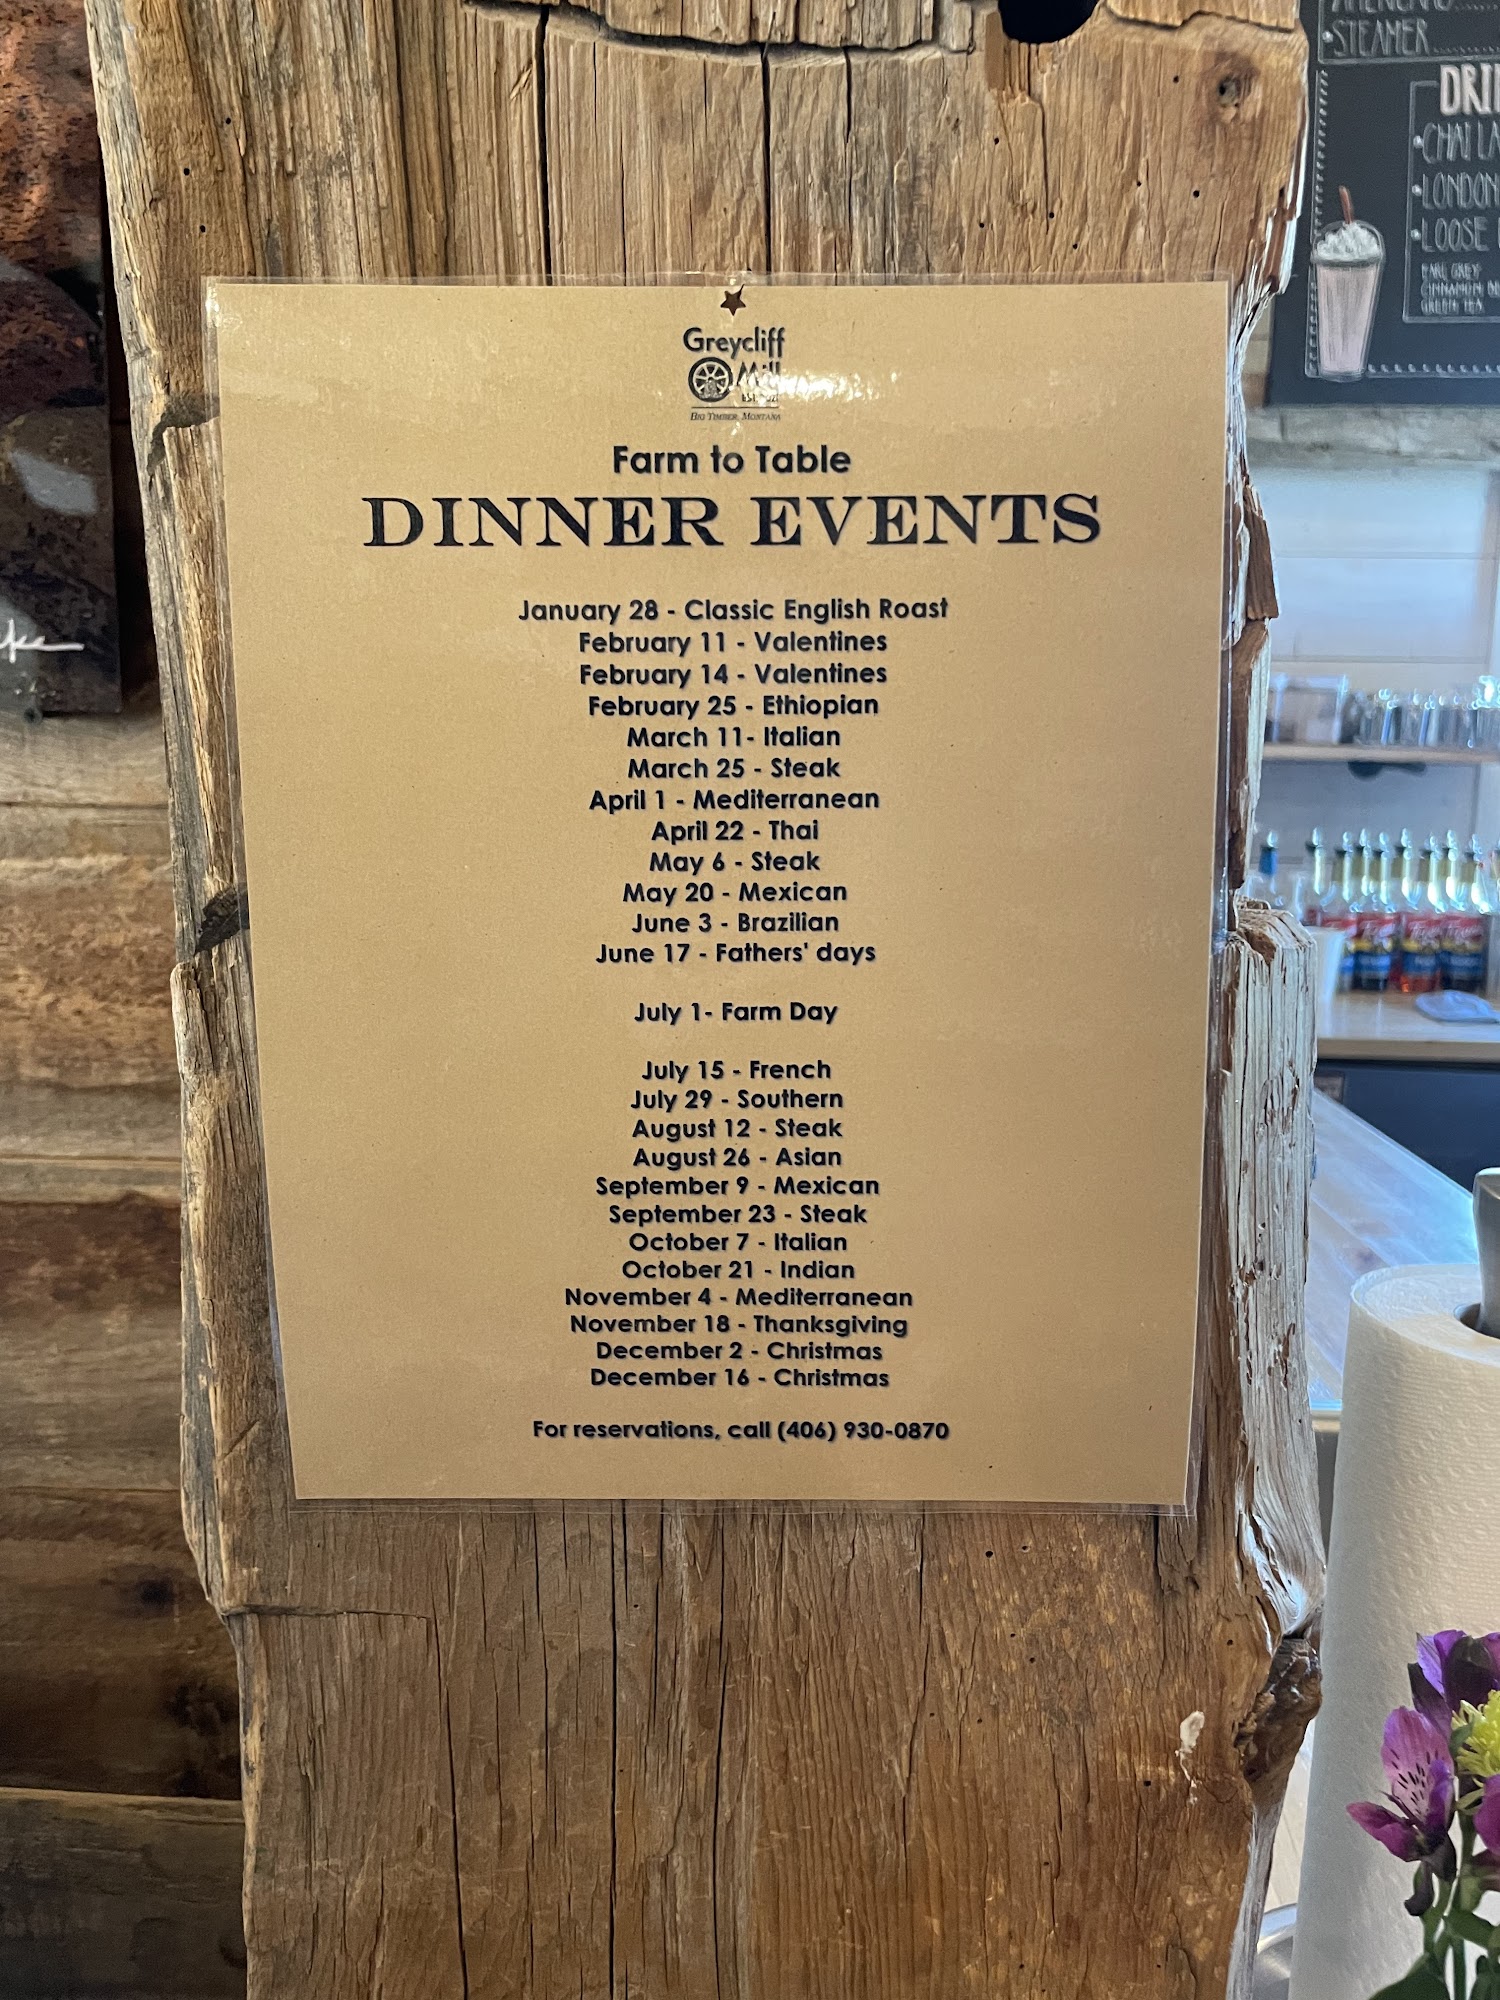 Greycliff
Mill
EST.
BIG TIMBER, MONTANA
Farm to Table
DINNER EVENTS
January 28 - Classic English Roast
February 11 - Valentines
February 14 - Valentines
February 25 - Ethiopian
March 11- Italian
March 25 - Steak
April 1 - Mediterranean
April 22 - Thai
May 6 - Steak
May 20 - Mexican
June 3 - Brazilian
June 17 - Fathers' days
July 1- Farm Day
July 15 - French
July 29 - Southern
August 12 - Steak
August 26 - Asian
September 9 - Mexican
September 23 - Steak
October 7 - Italian
October 21 - Indian
November 4 - Mediterranean
November 18 - Thanksgiving
December 2 - Christmas
December 16 - Christmas
For reservations, call (406) 930-0870
•STEAMER
•CHAI
•LONDON
•LOOSE
EARL GREY
CINNAMON
GREEN TEA